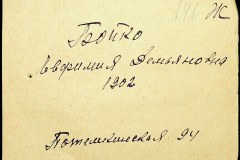 Ж
Бойко
Евфимия Демьяновна
1902
Потемкинская 94